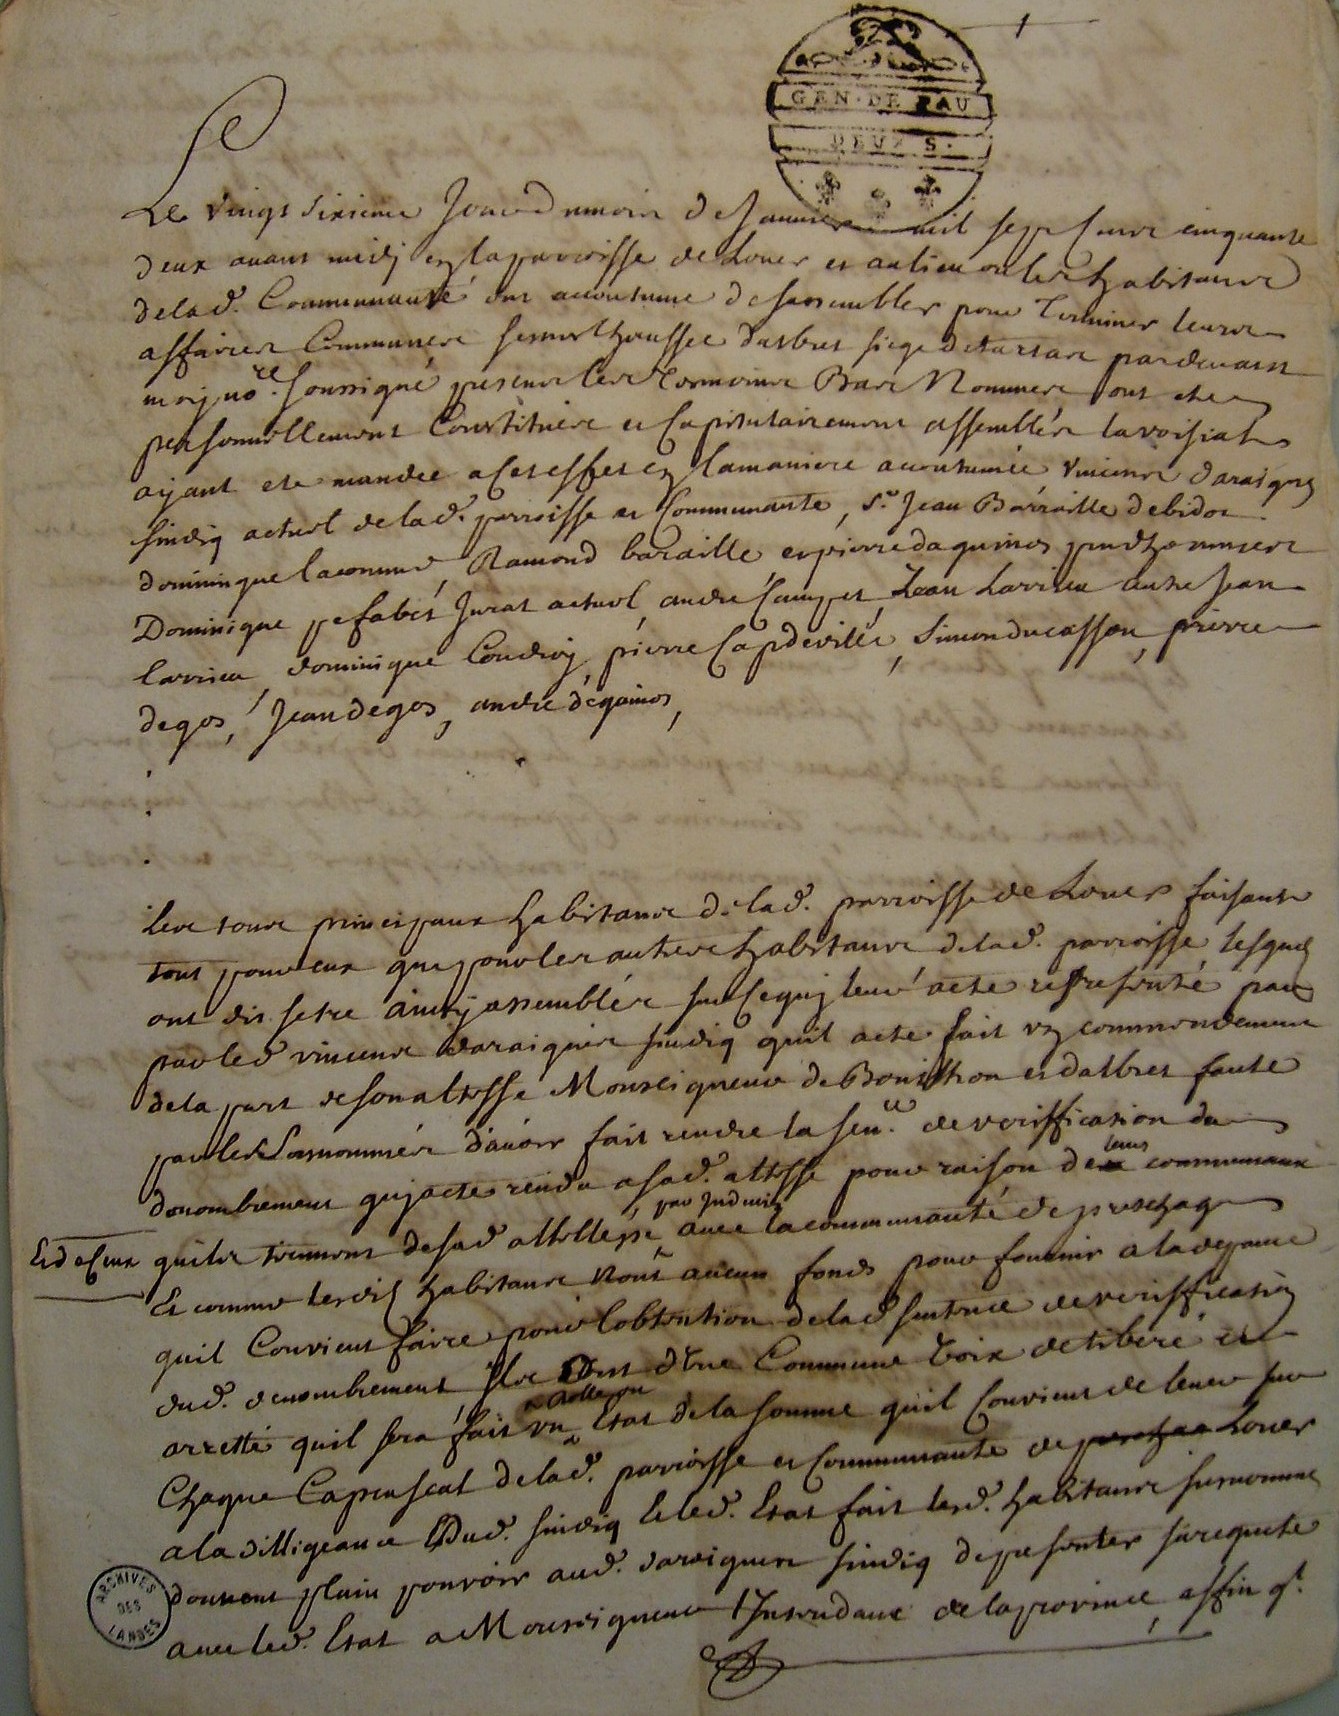 1
GEN · DE PAU
DEUX S.
Le vingt sixieme jour du mois de janvier mil sept cens cinquante
deux avant midy en la parroisse de Louer et au lieu ou les habitans
de lad. Communauté ont accoutume de sassembler pour terminer leurs
affaires Communes senechaussee dalbret siege de tartas pardevant
moy no.re soussigné presens les temoins Bas Nommes ont ete
personnellement Constitués et Capitulairement assemblés
ayant ete mandee a cet effet en la maniere accoutumée vincent daraignes
sindiq actuel de lad. parroisse et Communaute, s.r Jean Barraille debidos
dominique lacomme Ramond baraille et pierre daquinos prudhommes
Dominique jurat actuel, andre Campet, Jean Larrieu autre Jean
larrieu, dominique Coudroy, pierre Capdeville, Simon ducasson, pierre
degos, Jean degos, andre déquinos,
les tous principaux habitans de lad. parroisse de Louer faisants
tant pour eux que pour les autres habitans de lad. parroisse, lesquels
ont dit setre ainsy assemblés sur ce quj leur acté represanté par
par led. vincent daraignes sindiq quil acté fait un commendement
de la part de son altesse Monseigneur de Bouillon et dalbret faute
par les surnommés davoir fait rendre la sen.ce de veriffication du
denombrement quj acté rendu a sad. altesse pour raison de leurs communaux
Et de Ceux quils tiennent de sad altesse par Indivis avec la communauté de prechaq
Et comme lesdits habitans nont aucun fonds pour fournir a la depance
quil Convient faire pour lobtention de lad sentence de veriffication
dud. denombrement, ils ont dune Commune voix deliberé et
arretté quil sera fait un Rolle ou Etat de la somme quil Convient de lever sur
Chaque Capcasal de lad. parroisse et Communaute de Louer
a la dilligeance Dud. sindiq Et led. Etat fait lesd. habitans surnommes
donnent plain pouvoir aud. daraignes sindiq de presenter sa requete
avec led. Etat a Monseigneur l'Intendant de la province, affin q.l
ARCHIVES
DES
LANDES